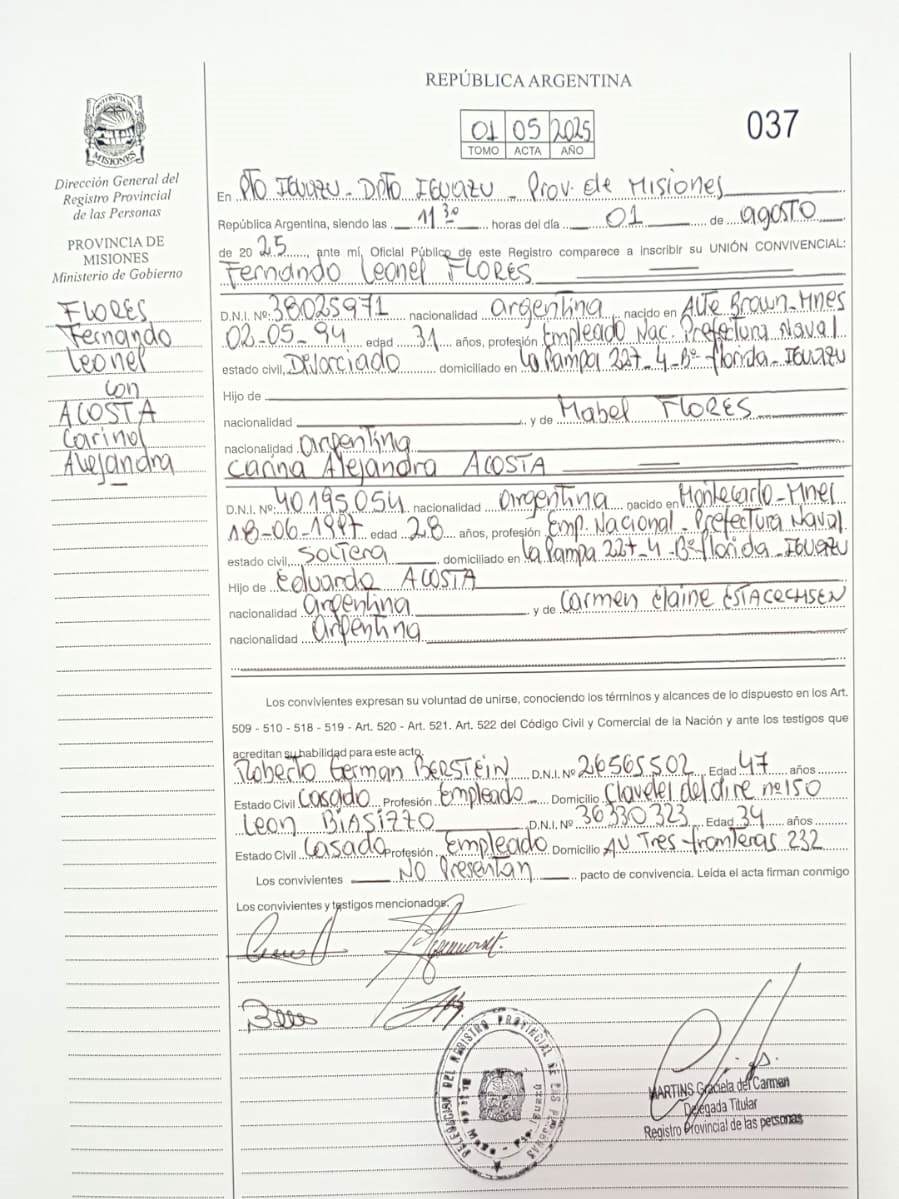 REPÚBLICA ARGENTINA
01 05 2025
TOMO ACTA AÑO
037
PROVINCIA DE
MISIONES
Dirección General del
Registro Provincial
de las Personas
PROVINCIA DE
MISIONES
Ministerio de Gobierno
FLORES
Fernando
Leonel
con
ACOSTA
Carina
Alejandra
En PTO IGUAZU - DPTO IGUAZU - Prov. de Misiones
República Argentina, siendo las 11 30 horas del día 01 de agosto
de 2025, ante mí, Oficial Público de este Registro comparece a inscribir su UNIÓN CONVIVENCIAL:
Fernando Leonel FLORES
D.N.I. Nº: 38025971 nacionalidad argentina nacido en Alte Brown - Mnes
02-05-94 edad 31 años, profesión Empleado Nac. Prefectura Naval
estado civil, Divorciado domiciliado en La Pampa 227-4-Bº florida - IGUAZU
Hijo de
nacionalidad y de Mabel FLORES
nacionalidad argentina
Carina Alejandra ACOSTA
D.N.I. Nº: 40195054 nacionalidad argentina nacido en Montecarlo - Mnes
18-06-1997 edad 28 años, profesión Emp. Nacional - Prefectura Naval
estado civil, Soltera domiciliado en La Pampa 227-4-Bº florida - IGUAZU
Hijo de Eduardo ACOSTA
nacionalidad argentina y de Carmen Elaine
nacionalidad argentina
Los convivientes expresan su voluntad de unirse, conociendo los términos y alcances de lo dispuesto en los Art.
509 - 510 - 518 - 519 - Art. 520 - Art. 521. Art. 522 del Código Civil y Comercial de la Nación y ante los testigos que
acreditan su habilidad para este acto.
Roberto German BERSTEIN D.N.I. Nº 26565502 Edad 47 años
Estado Civil Casado Profesión Empleado Domicilio Claveles del aire nº 150
Leon BIASIZZO D.N.I. Nº 36330323 Edad 34 años
Estado Civil Casado Profesión Empleado Domicilio AV Tres fronteras 232
Los convivientes No Presentan pacto de convivencia. Leída el acta firman conmigo
Los convivientes y testigos mencionados.
DELEGACION DEL REGISTRO PROVINCIAL DE LAS PERSONAS
MARTINS Graciela del Carmen
Delegada Titular
Registro Provincial de las personas